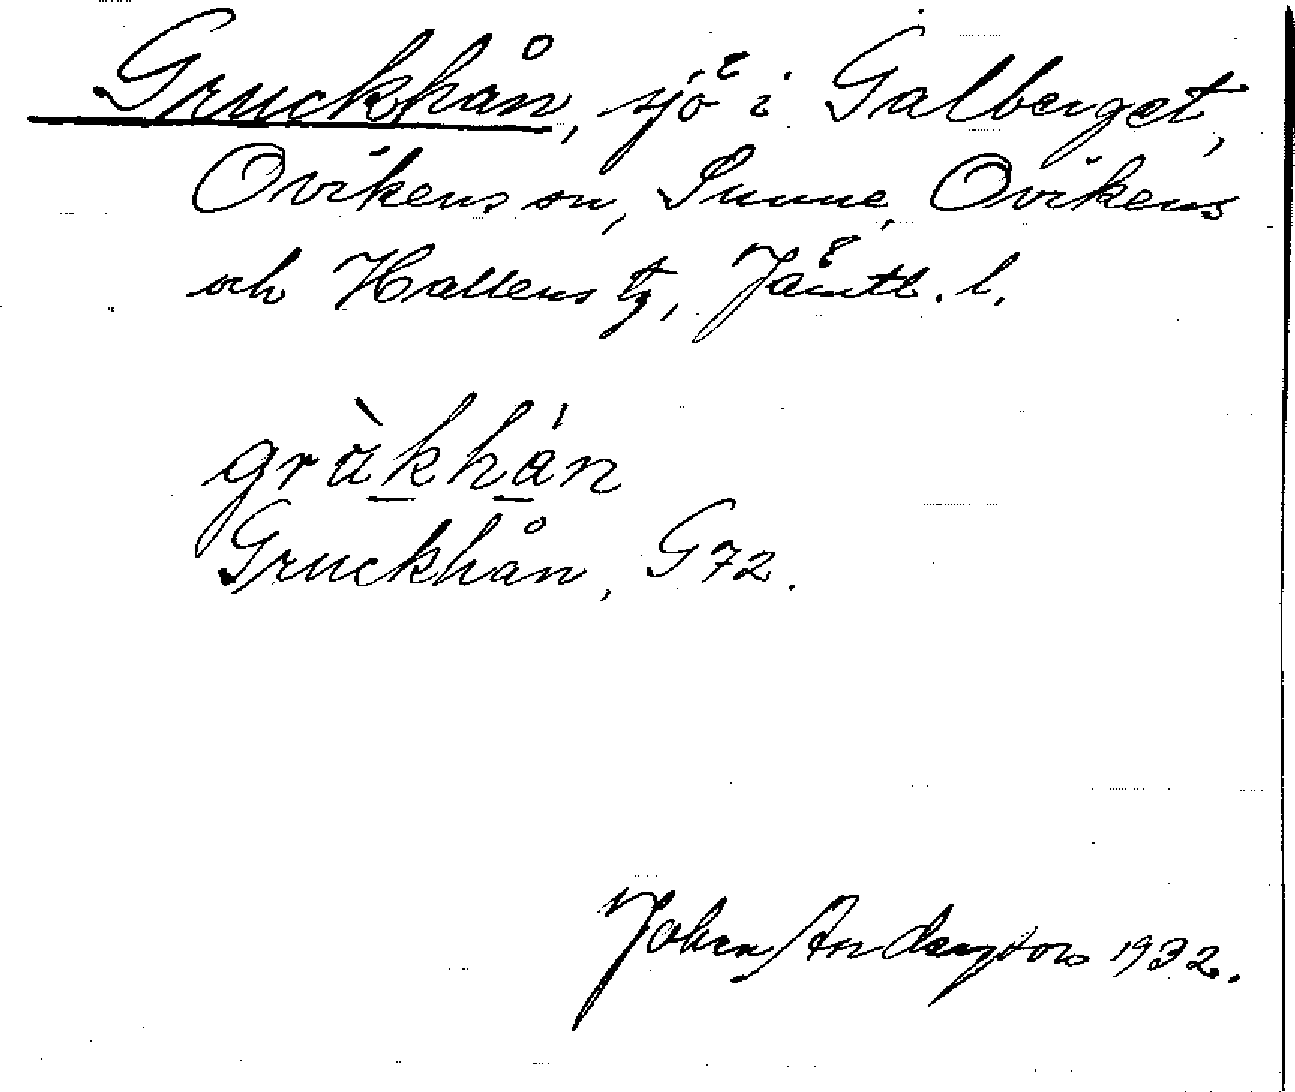 Gruckhån, sjö i Galberget,
Ovikens sn, Sunne, Ovikens
och Hallens tg, Jämtl. l.
gràkhán
Gruckhån, G72.
John Anderzon 1932.